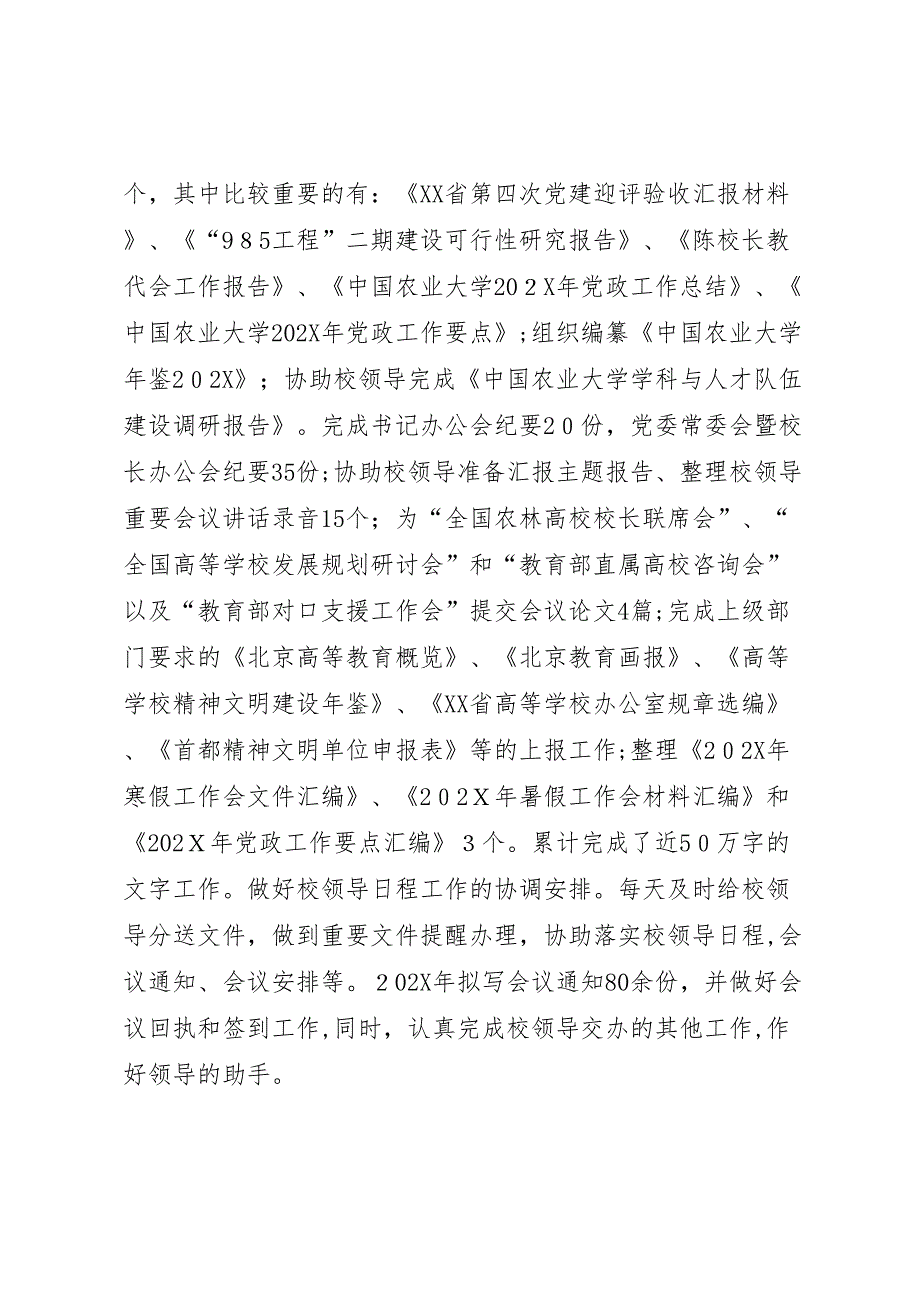 个，其中比较重要的有：《XX省第四次党建迎评验收汇报材料
》、《“985工程”二期建设可行性研究报告》、《陈校长教
代会工作报告》、《中国农业大学202X年党政工作总结》、《
中国农业大学202X年党政工作要点》;组织编纂《中国农业大学
年鉴202X》；协助校领导完成《中国农业大学学科与人才队伍
建设调研报告》。完成书记办公会纪要20份，党委常委会暨校
长办公会纪要35份;协助校领导准备汇报主题报告、整理校领导
重要会议讲话录音15个；为“全国农林高校校长联席会”、“
全国高等学校发展规划研讨会”和“教育部直属高校咨询会”
以及“教育部对口支援工作会”提交会议论文4篇;完成上级部
门要求的《北京高等教育概览》、《北京教育画报》、《高等
学校精神文明建设年鉴》、《XX省高等学校办公室规章选编》
、《首都精神文明单位申报表》等的上报工作;整理《202X年
寒假工作会文件汇编》、《202X年暑假工作会材料汇编》和
《202X年党政工作要点汇编》3个。累计完成了近50万字的
文字工作。做好校领导日程工作的协调安排。每天及时给校领
导分送文件，做到重要文件提醒办理，协助落实校领导日程,会
议通知、会议安排等。202X年拟写会议通知80余份，并做好会
议回执和签到工作,同时，认真完成校领导交办的其他工作,作
好领导的助手。